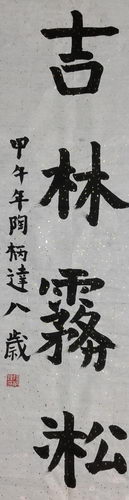 吉林霧淞
甲午年陶柄達八歲